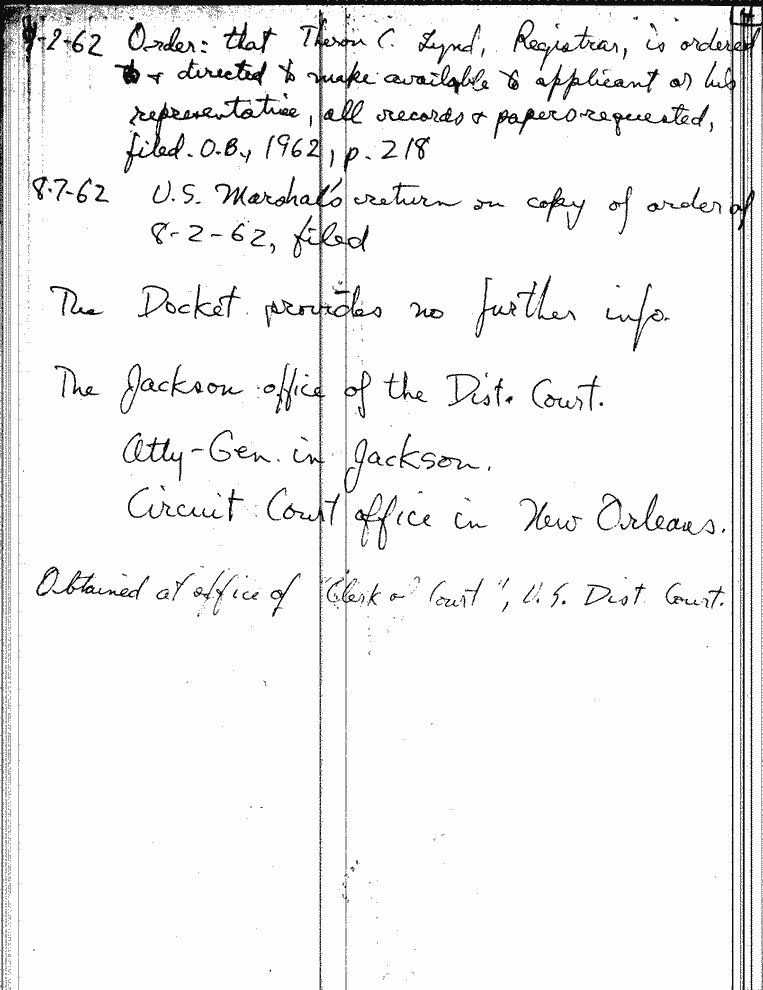 8-2-62 Order: that Theron C. Lynd, Registrar, is ordered
& directed to make available to applicant or his
representative, all records & papers requested,
filed. O.B., 1962, p. 218
8-7-62 U.S. Marshal's return on copy of order of
8-2-62, filed
The Docket provides no further info.
The Jackson office of the Dist. Court.
Atty-Gen. in Jackson.
Circuit Court office in New Orleans.
Obtained at office of "Clerk of Court", U.S. Dist. Court.